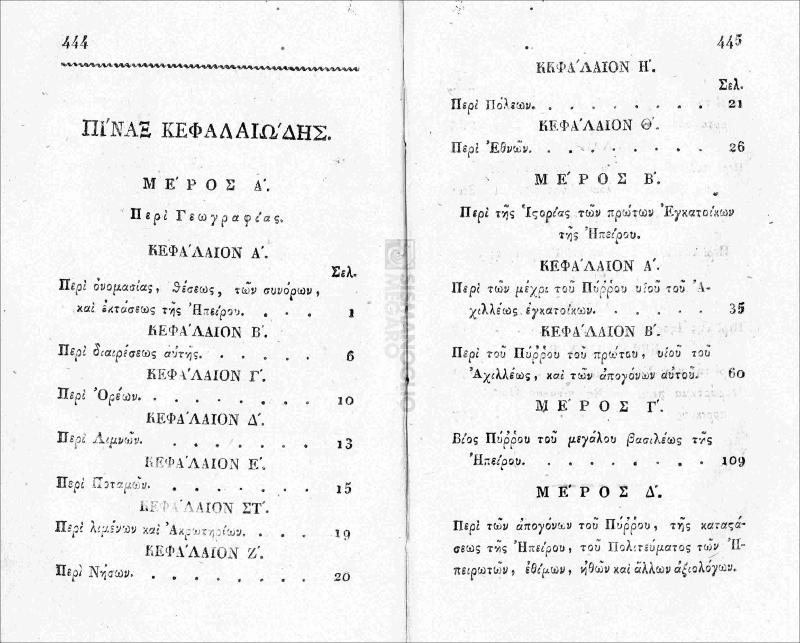 444
ΠΙ΄ΝΑΞ ΚΕΦΑΛΑΙΩ΄ΔΗΣ.
ΜΕ΄ΡΟΣ Α΄.
Περὶ Γεωγραφίας.
ΚΕΦΑ΄ΛΑΙΟΝ Α΄.
Σελ.
Περὶ ὀνομασίας, θέσεως, τῶν συνόρων,
καὶ ἐκτάσεως τῆς Ἠπείρου. . . . 1
ΚΕΦΑ΄ΛΑΙΟΝ Β΄.
Περὶ διαιρέσεως αὐτῆς. . . . . . 6
ΚΕΦΑ΄ΛΑΙΟΝ Γ΄.
Περὶ Ὀρέων. . . . . . . . 10
ΚΕΦΑ΄ΛΑΙΟΝ Δ΄.
Περὶ Λιμνῶν. . . . . . . . 13
ΚΕΦΑ΄ΛΑΙΟΝ Ε΄.
Περὶ Ποταμῶν. . . . . . . . 15
ΚΕΦΑ΄ΛΑΙΟΝ ΣΤ΄.
Περὶ λιμένων καὶ Ἀκρωτηρίων. . . . 19
ΚΕΦΑ΄ΛΑΙΟΝ Ζ΄.
Περὶ Νήσων. . . . . . . . 20
445
ΚΕΦΑ΄ΛΑΙΟΝ Η΄.
Σελ.
Περὶ Πόλεων. . . . . . . . 21
ΚΕΦΑ΄ΛΑΙΟΝ Θ΄.
Περὶ Ἐθνῶν. . . . . . . . 26
ΜΕ΄ΡΟΣ Β΄.
Περὶ τῆς Ἱϛορίας τῶν πρώτων Ἐγκατοίκων
τῆς Ἠπείρου.
ΚΕΦΑ΄ΛΑΙΟΝ Α΄.
Περὶ τῶν μέχρι τοῦ Πύῤῥου υἱοῦ τοῦ Ἀ-
χιλλέως ἐγκατοίκων. . . . . . 35
ΚΕΦΑ΄ΛΑΙΟΝ Β΄.
Περὶ τοῦ Πύῤῥου τοῦ πρώτου, υἱοῦ τοῦ
Ἀχιλλέως, καὶ τῶν ἀπογόνων αὐτοῦ. 60
ΜΕ΄ΡΟΣ Γ΄.
Βίος Πύῤῥου τοῦ μεγάλου βασιλέως τῆς
Ἠπείρου. . . . . . . . 109
ΜΕ΄ΡΟΣ Δ΄.
Περὶ τῶν ἀπογόνων τοῦ Πύῤῥου, τῆς καταϛά-
σεως τῆς Ἠπείρου, τοῦ Πολιτεύματος τῶν Ἠ-
πειρωτῶν, ἐθίμων, ἠθῶν καὶ ἄλλων ἀξιολόγων.
SISMANOGLIO
MEGARO